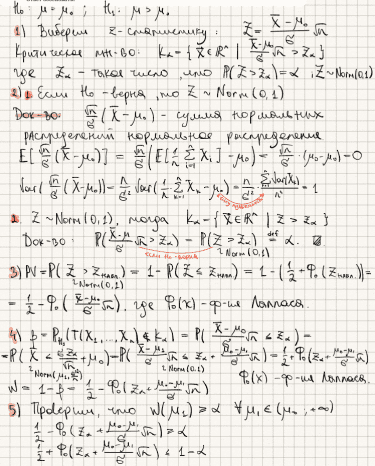 H₀: μ = μ₀ ; H₁: μ > μ₀
1) Выберем z-статистику: Z = (X̄ - μ₀)/σ √n
Критическое мн-во: K_α = { X⃗ ∈ ℝⁿ | (X̄ - μ₀)/σ √n > z_α }
где z_α - такое число, что P(Z > z_α) = α, Z ~ Norm(0,1)
2) 1. Если H₀ - верна, то Z ~ Norm(0,1)
Док-во: √n/σ (X̄ - μ₀) - сумма нормальных
распределений нормальное распределение
E[√n/σ (X̄ - μ₀)] = √n/σ (E[1/n Σ X_i] - μ₀) = √n/σ · (μ₀ - μ₀) = 0
Var(√n/σ (X̄ - μ₀)) = n/σ² Var(1/n Σ X_k - μ₀) = n/σ² Σ Var(X_k)/n² = 1
2. Z ~ Norm(0,1), тогда K_α = { X⃗ ∈ ℝⁿ | Z > z_α }
Док-во: P((X̄ - μ)/σ √n > z_α) = P(Z > z_α) def= α.
если H₀ - верна ~ Norm(0,1)
3) PV = P(Z > z_набл) = 1 - P(Z ≤ z_набл) = 1 - (1/2 + Φ₀(z_набл)) =
~ Norm(0,1)
= 1/2 - Φ₀((X̄ - μ₀)/σ √n), где Φ₀(x) - ф-ия Лапласа.
4) β = P_H₁(T(X₁,...X_n) ∉ K_α) = P((X̄ - μ₀)/σ √n ≤ z_α) =
= P(X̄ ≤ σz_α/√n + μ₀) = P((X̄ - μ₁)/σ √n ≤ z_α + (μ₀ - μ₁)/σ √n) = 1/2 + Φ₀(z_α + (μ₀ - μ₁)/σ √n)
~ Norm(0,1)
Φ₀(x) - ф-ия Лапласа.
W = 1 - β = 1/2 - Φ₀(z_α + (μ₀ - μ₁)/σ √n)
5) Проверим, что W(μ₁) ≥ α ∀μ₁ ∈ (μ₀, +∞)
1/2 - Φ₀(z_α + (μ₀ - μ₁)/σ √n) ≥ α
1/2 + Φ₀(z_α + (μ₀ - μ₁)/σ √n) ≤ 1 - α